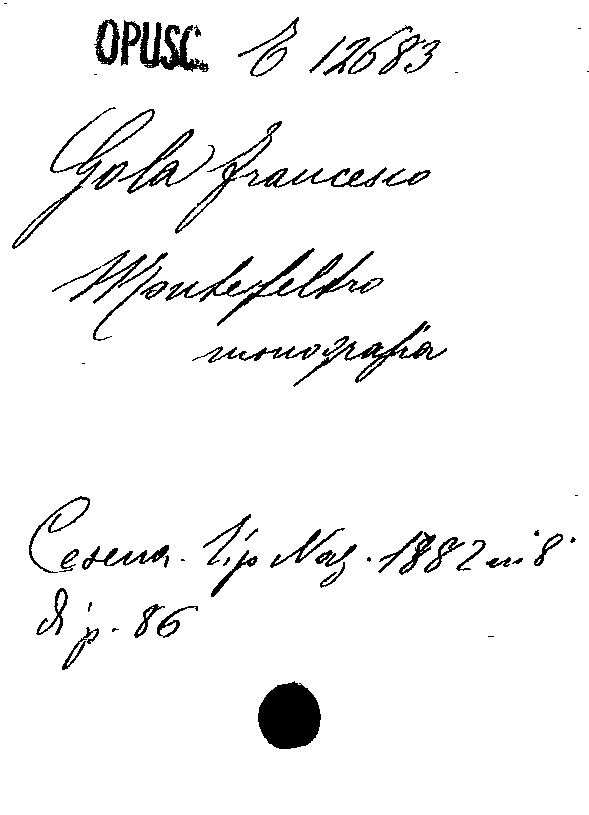 OPUSC. E 12683
Gola Francesco
Montefeltro
monografia
Cesena. Tip Naz. 1882 in 8°
di p. 86